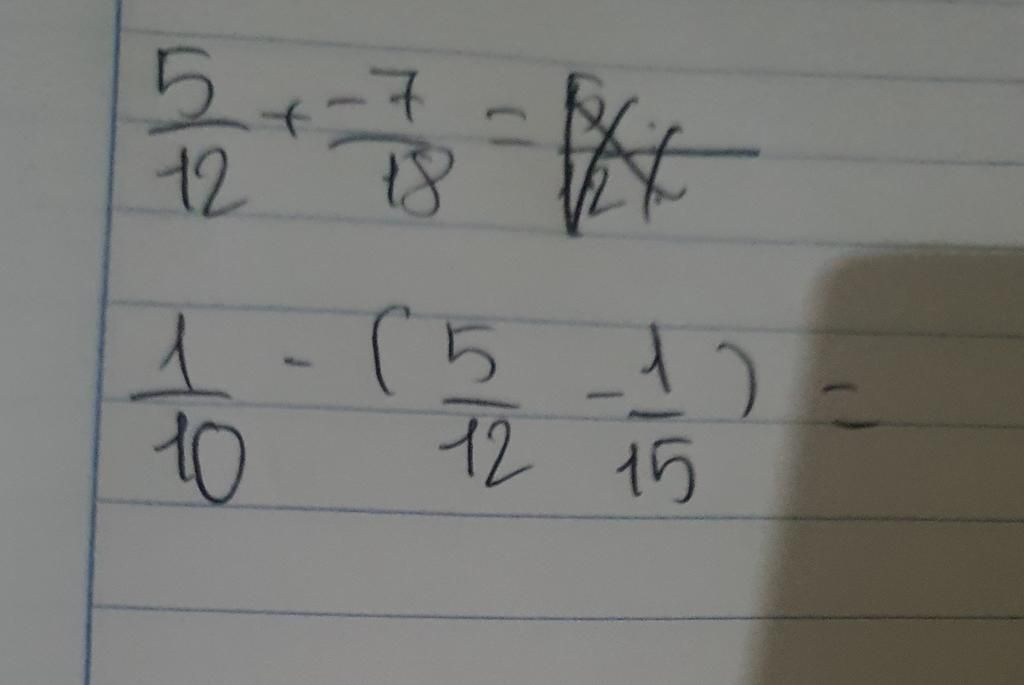 5/12 + -7/18 =
1/10 - ( 5/12 - 1/15 ) =